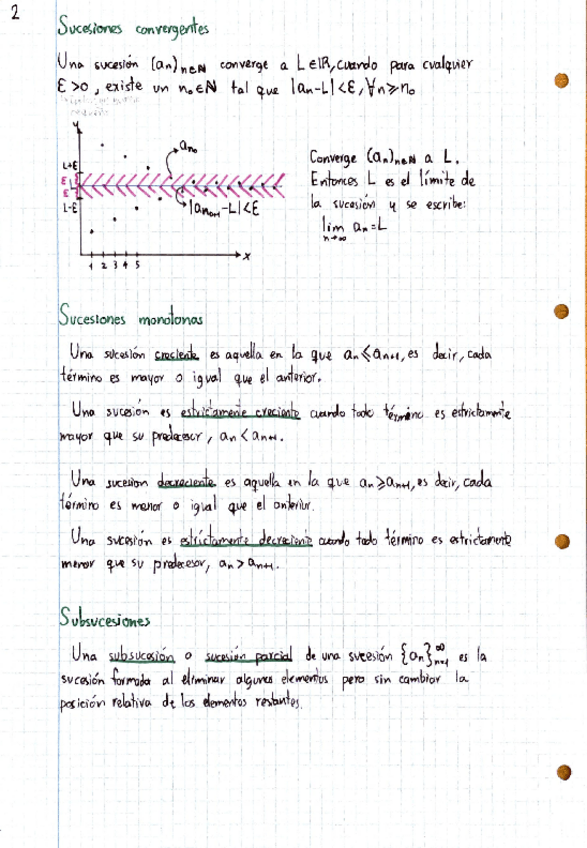 2
Sucesiones convergentes
Una sucesión (an)n∈N converge a L∈IR, cuando para cualquier
ε>0, existe un n₀∈N tal que |an-L|<ε, ∀n≥n₀
y
an₀
L+ε
ε
L
ε
L-ε
|an₀₊₁-L|<ε
x
1 2 3 4 5
Converge (an)n∈N a L.
Entonces L es el límite de
la sucesión y se escribe:
lim an=L
n→∞
Sucesiones monótonas
Una sucesión creciente es aquella en la que an≤an+1, es decir, cada
término es mayor o igual que el anterior.
Una sucesión es estrictamente creciente cuando todo término es estrictamente
mayor que su predecesor, an<an+1.
Una sucesion decreciente es aquella en la que an≥an+1, es decir, cada
término es menor o igual que el anterior.
Una sucesión es estrictamente decreciente cuando todo término es estrictamente
menor que su predecesor, an>an+1.
Subsucesiones
Una subsucesión o sucesión parcial de una sucesión {an}∞n=1 es la
sucesión formada al eliminar algunos elementos pero sin cambiar la
posición relativa de los elementos restantes.